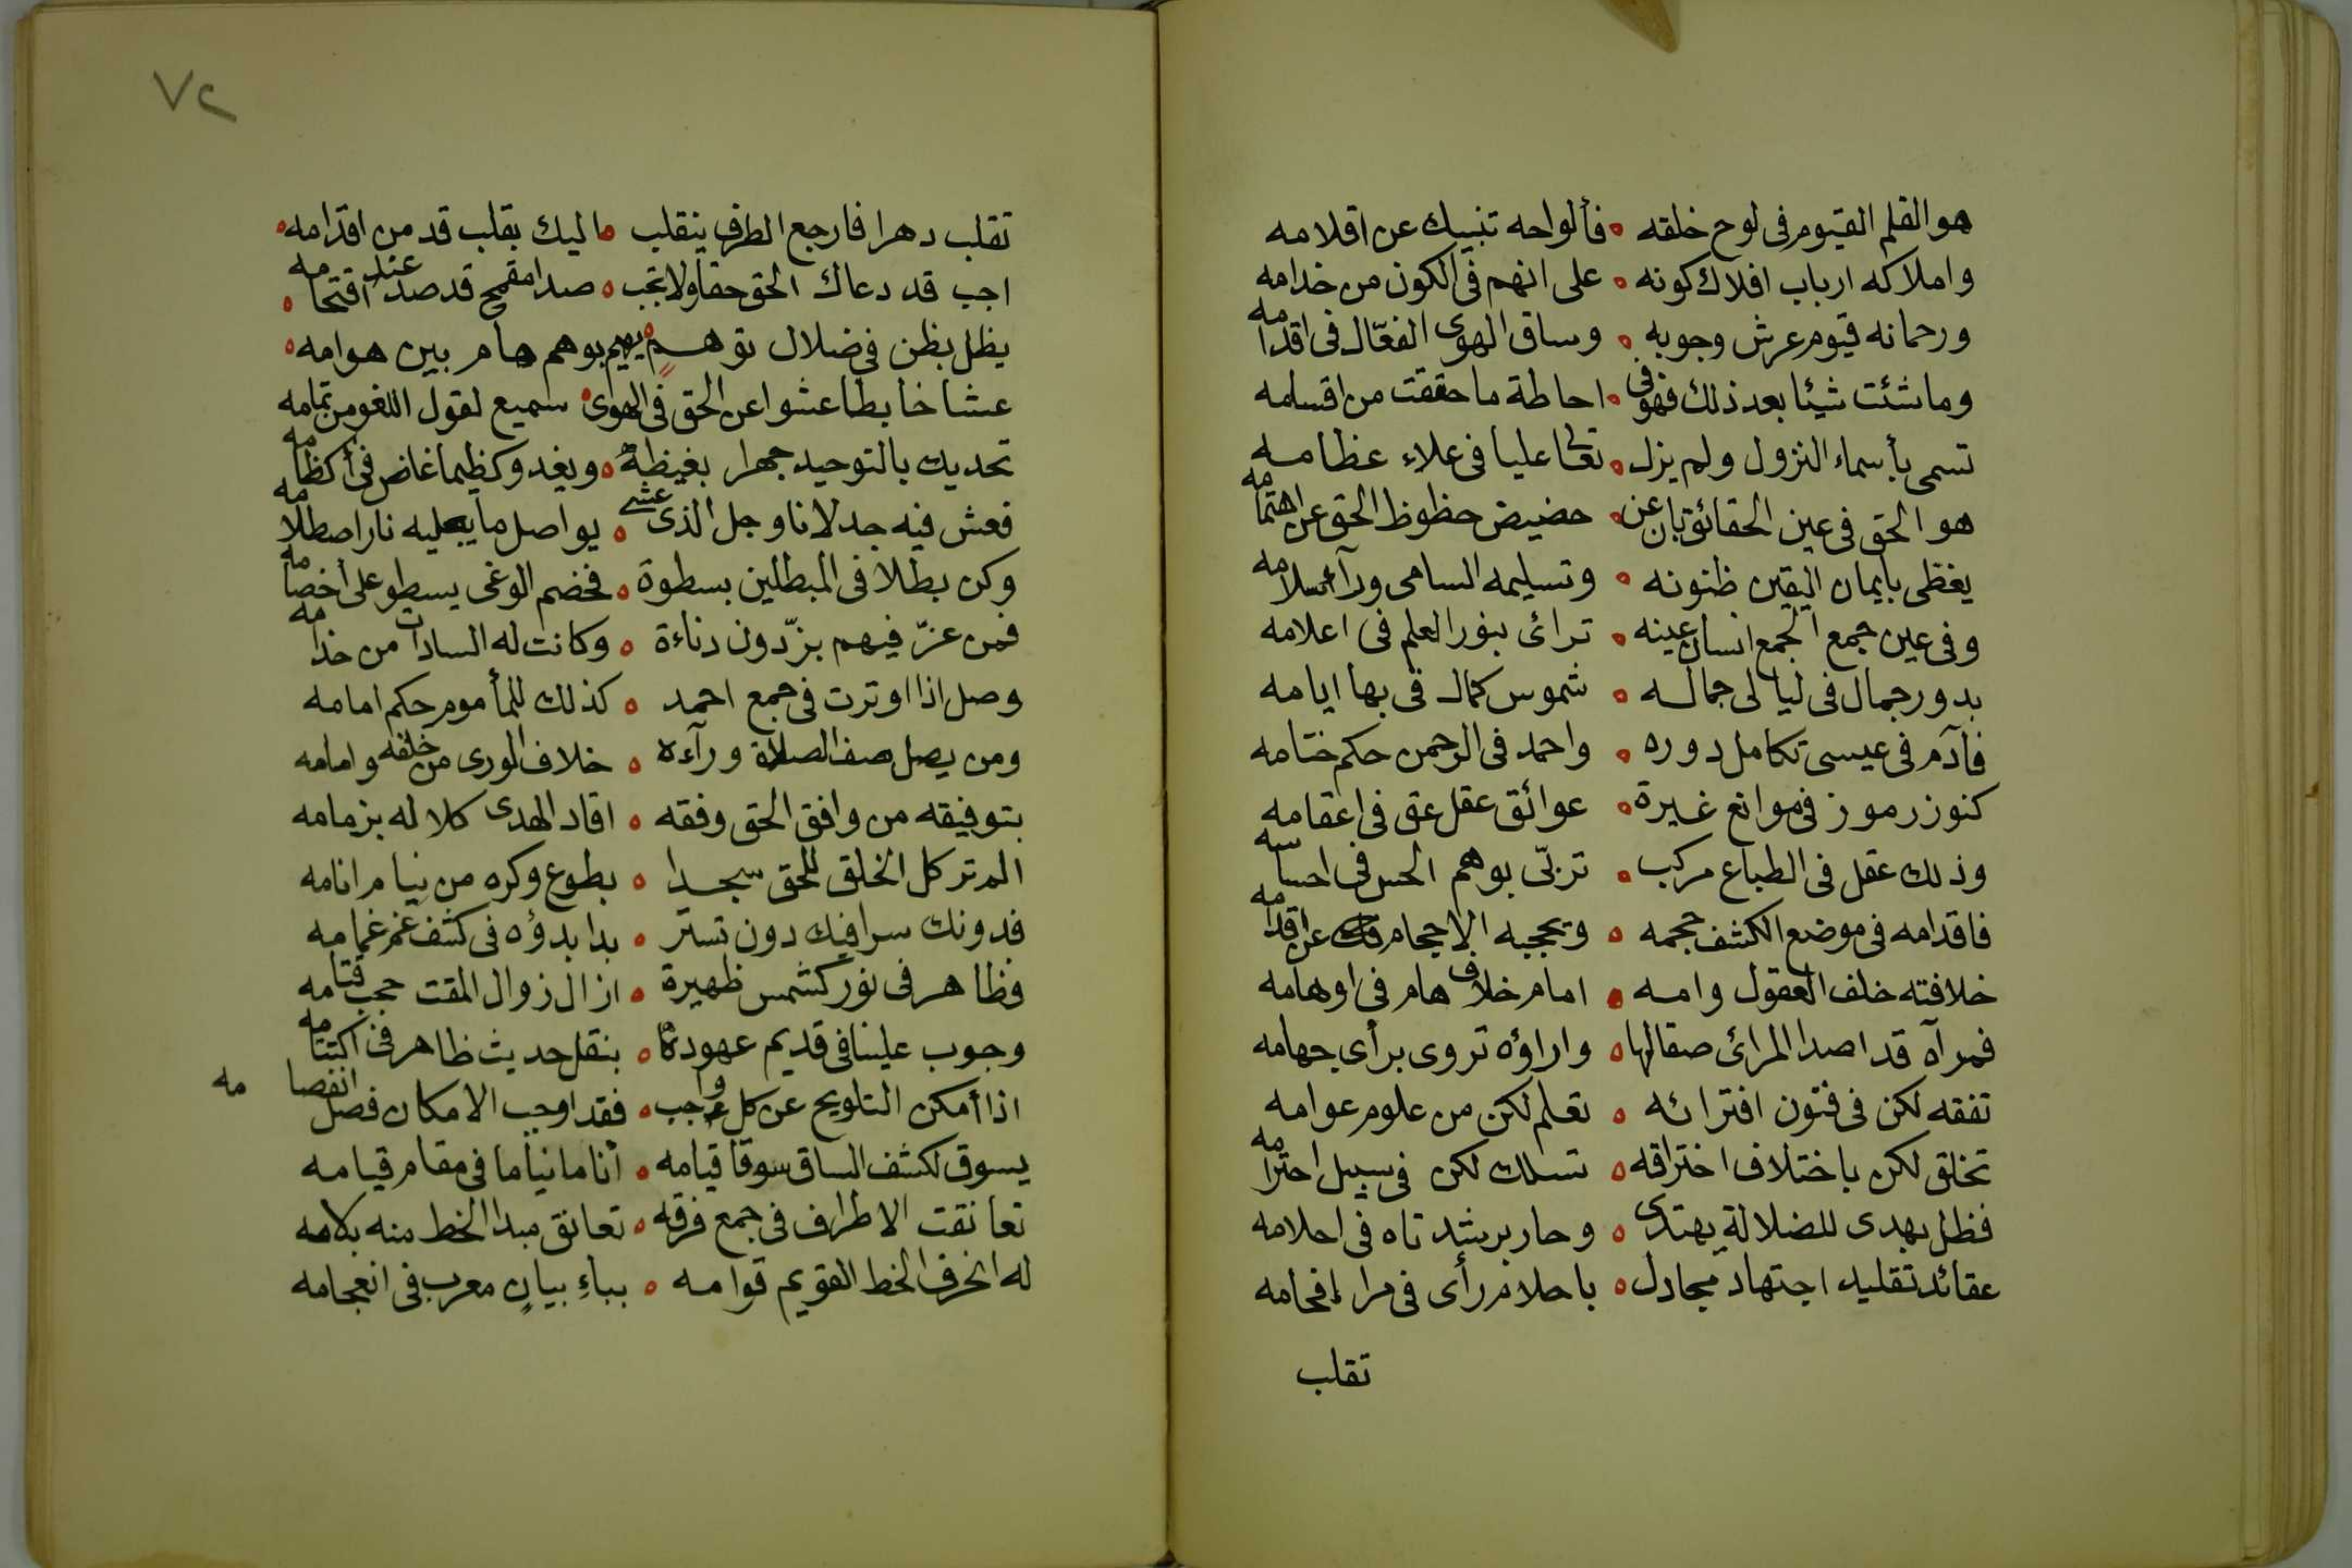 هو القلم القيوم في لوح خلقه ه فألواحه تنبيك عن اقلامه
واملاكه ارباب افلاك كونه ه على انهم في الكون من خدامه
ورحمانه قيوم عرش وجوبه ه وساق الهوى الفعّال في اقدامه
وما شئت شيئا بعد ذلك فهو في ه احاطة ما حققت من اقسامه
تسمى بأسماء النزول ولم يزل ه تعالى عليا في علاء عظامه
هو الحق في عين الحقائق بان عن ه حضيض حظوظ الحق عن اهتمامه
يغظى بايمان اليقين ظنونه ه وتسليمه السامى ورآ اسلامه
وفي عين جمع الجمع انسان عينه ه ترائى بنور العلم في اعلامه
بدور جمال في ليالى جماله ه شموس كمال في بها ايامه
فآدم في عيسى تكامل دوره ه واحمد في الرحمن حكم ختامه
كنوز رموز في موانع غيرة ه عوائق عقل عق في اعقامه
وذلك عقل في الطباع مركب ه تربّى بوهم الحس في احساسه
فاقدامه في موضع الكشف حجمه ه ويحجبه الاحجام عن اقدامه
خلافته خلف العقول وامه ه امام خلاف هام في اوهامه
فمرآه قد اصدا المرائى صقالها ه واراؤه تروى برأى جهامه
تفقه لكن في فنون افترائه ه تعلم لكن من علوم عوامه
تخلق لكن باختلاف اختراقه ه تسلك لكن في سبيل احترامه
فظل يهدى للضلالة يهتدى ه وحار برشد تاه في احلامه
عقائد تقليد اجتهاد مجادل ه باحلام رأى في مرا إفحامه
تقلب
٧٢
تقلب دهرا فارجع الطرف ينقلب ه اليك بقلب قد من اقدامه ه
اجب قد دعاك الحق حقا ولا تجب ه صدا مقمح قد صد عند اقتحامه ه
يظل بظن في ضلال توهم ه يهيم بوهم هام بين هوامه ه
عشا خابطا عشوا عن الحق في الهوى ه سميع لقول اللغو من تمامه
تحديك بالتوحيد جهرا بغيظه ه ويغدو كظيما غاض في أكظامه
فعش فيه جدلانا وجل الذى عشى ه يواصل ما يصليه نار اصطلامه
وكن بطلا في المبطلين بسطوة ه فخضم الوغى يسطو على أخصامه
فمن عزّ فيهم بزّ دون دناءة ه وكانت له السادات من خدامه
وصل اذا اوترت في جمع احمد ه كذلك للمأموم حكم امامه
ومن يصل صف الصلاة ورآءه ه خلاف الورى من خلفه وامامه
بتوفيقه من وافق الحق وفقه ه اقاد الهدى كلا له بزمامه
الم تر كل الخلق للحق سجدا ه بطوع وكره من نيام انامه
فدونك سرا فيك دون تستر ه بدا بدؤه في كشف غم غمامه
فظاهر في نور كشمس ظهيرة ه ازال زوال المقت حجب قتامه
وجوب علينا في قديم عهودنا ه بنقل حديث ظاهر في اكتتامه
اذا أمكن التلويح عن كل واجب ه فقد اوجب الامكان فصل انفصامه
يسوق لكشف الساق سوقا قيامه ه أناما نياما في مقام قيامه
تعانقت الاطراف في جمع فرقه ه تعانق مبدا الخط منه بلامه
له انحرف الخط القويم قوامه ه بباءِ بيانٍ معرب في انعجامه